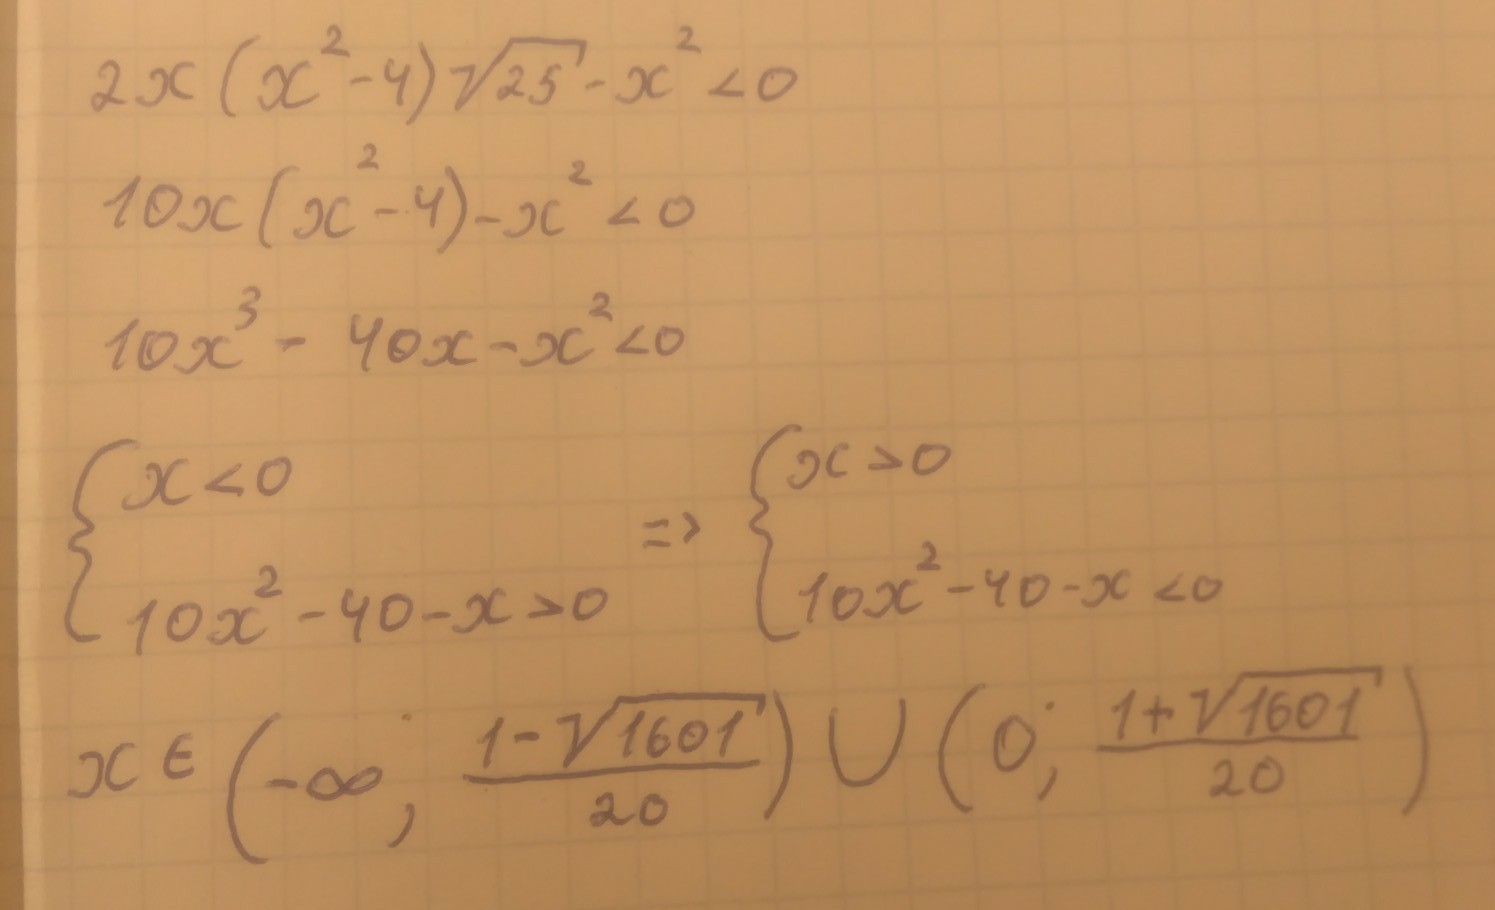 2x(x²-4)√25-x²<0
10x(x²-4)-x²<0
10x³- 40x-x²<0
{x<0 10x²-40-x>0 => {x>0 10x²-40-x<0
x∈(-∞; (1-√1601)/20)∪(0; (1+√1601)/20)